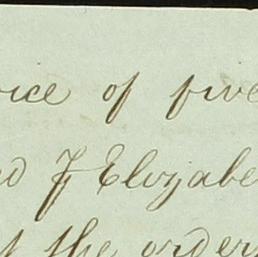 vice of five
d J Elizabe
t the order